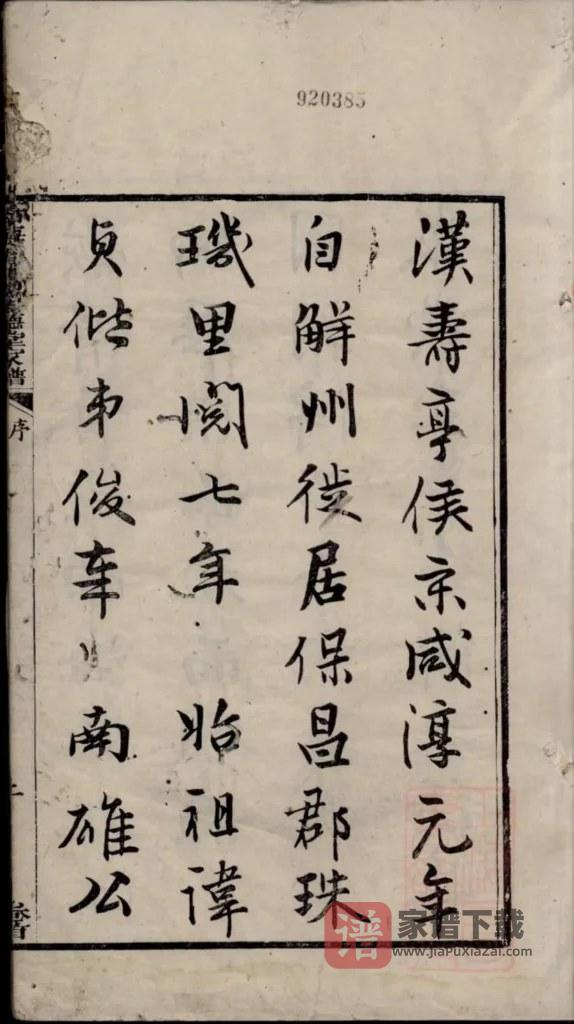 920385
漢壽亭侯宋咸淳元年
自解州徙居保昌郡珠
璣里閱七年始祖諱
貞偕弟俊南雄公
堂家譜
序
卷首
谱 家谱下载
www.jiaPuxiazai.com